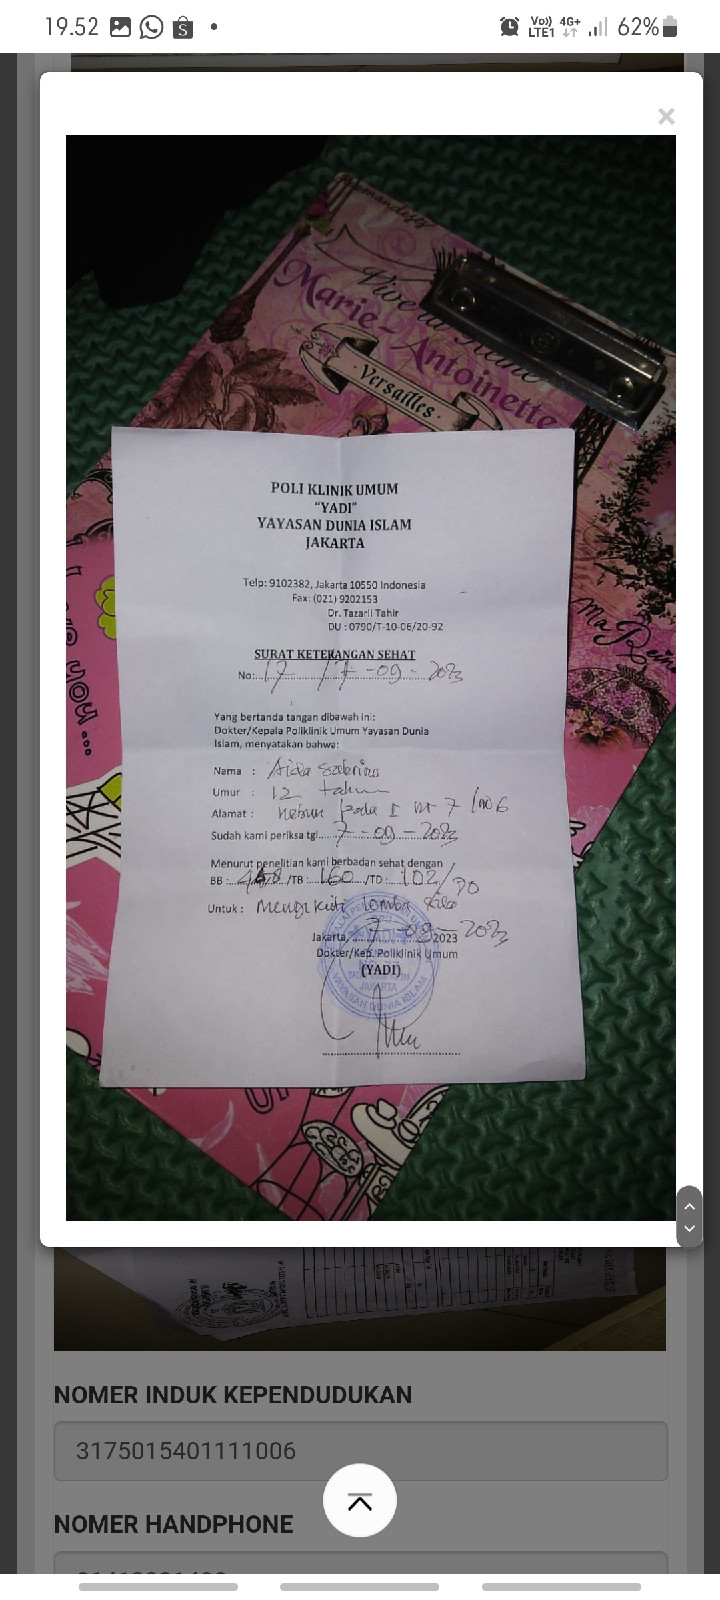 19.52
Vo)) 4G+ 62%
LTE1
×
Vive la Reine
Marie-Antoinette
Versailles
Ma Reine
POLI KLINIK UMUM
"YADI"
YAYASAN DUNIA ISLAM
JAKARTA
Telp: 9102382, Jakarta 10550 Indonesia
Fax: (021) 9202153
Dr. Tazarli Tahir
DU : 0790/T-10-06/20-92
SURAT KETERANGAN SEHAT
No: 17 / 7 - 09 - 2023
Yang bertanda tangan dibawah ini:
Dokter/Kepala Poliklinik Umum Yayasan Dunia
Islam, menyatakan bahwa:
Nama : Aida Sabrina
Umur : 12 tahun
Alamat : Kebun pala I 7 / 006
Sudah kami periksa tgl. 7 - 09 - 2023
Menurut penelitian kami berbadan sehat dengan
BB : /TB : 160 /TD : 102/70
Untuk : Mengikuti lomba
Jakarta, 7 - 09 - 2023 2023
Dokter/Kep. Poliklinik Umum
(YADI)
JAKARTA
YAYASAN DUNIA ISLAM
NOMER INDUK KEPENDUDUKAN
3175015401111006
NOMER HANDPHONE